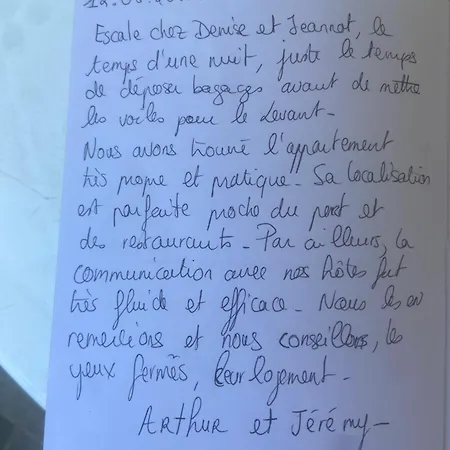 Escale chez Denise et Jeannot, le
temps d'une nuit, juste le temps
de déposer bagages avant de mettre
les voiles pour le Levant-
Nous avons trouvé l'appartement
très propre et pratique- Sa localisation
est parfaite proche du port et
des restaurants- Par ailleurs, la
communication avec nos hôtes fut
très fluide et efficace- Nous les en
remercions et nous conseillons, les
yeux fermés, leur logement-
ARTHUR et JÉRÉMY-